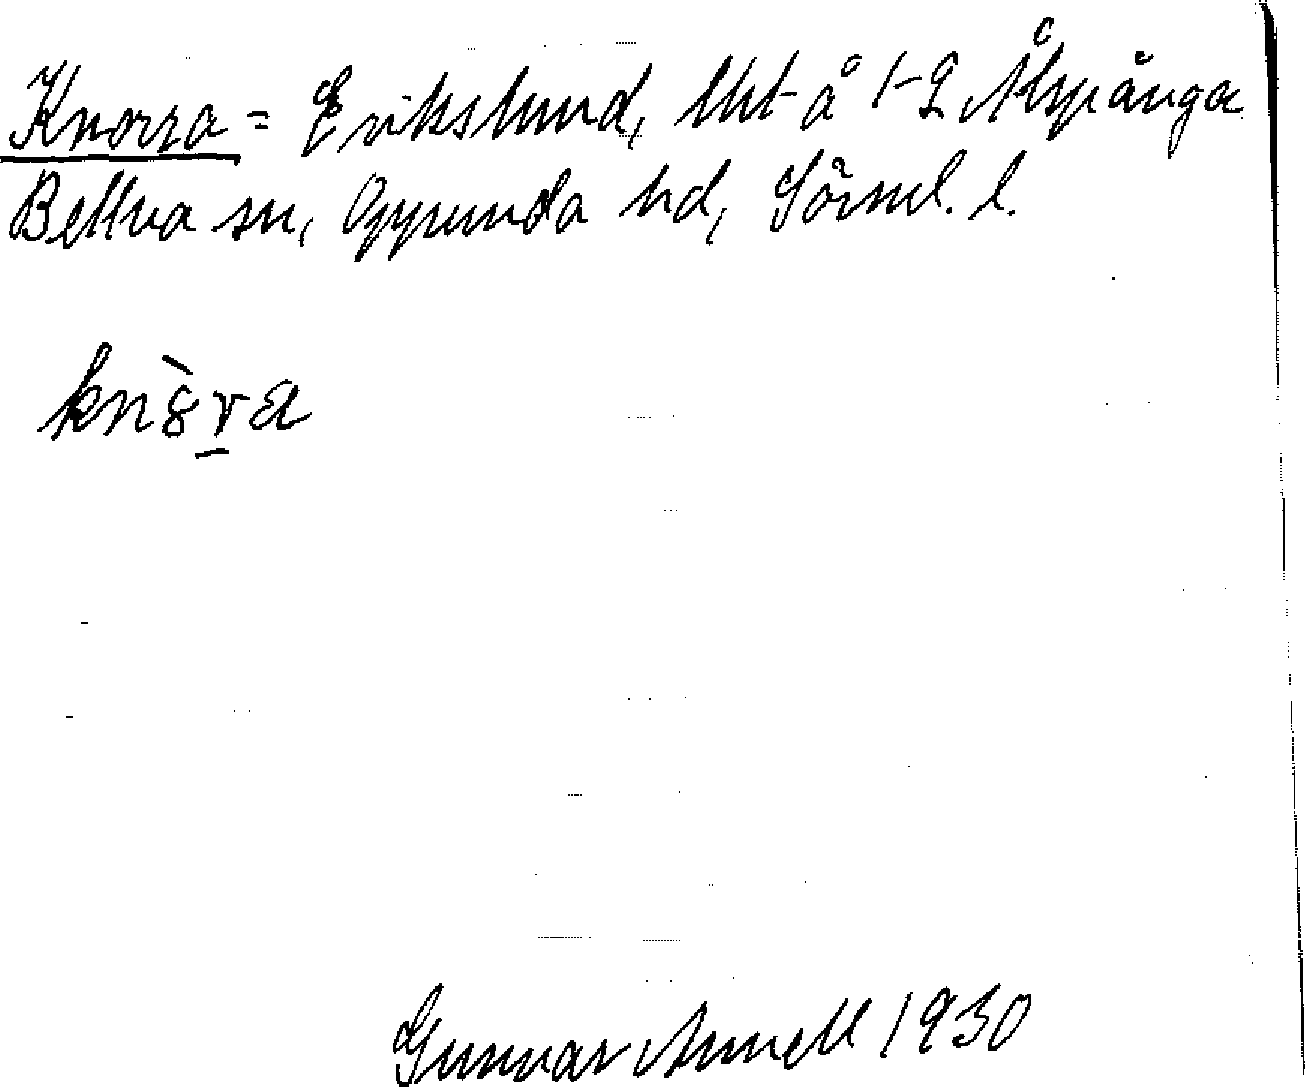 Knorra = Erikslund, lht å 1-2 Ålspånga
Bettna sn, Oppunda hd, Södml. l.
knò̤r̠a
Gunnar Annell 1930